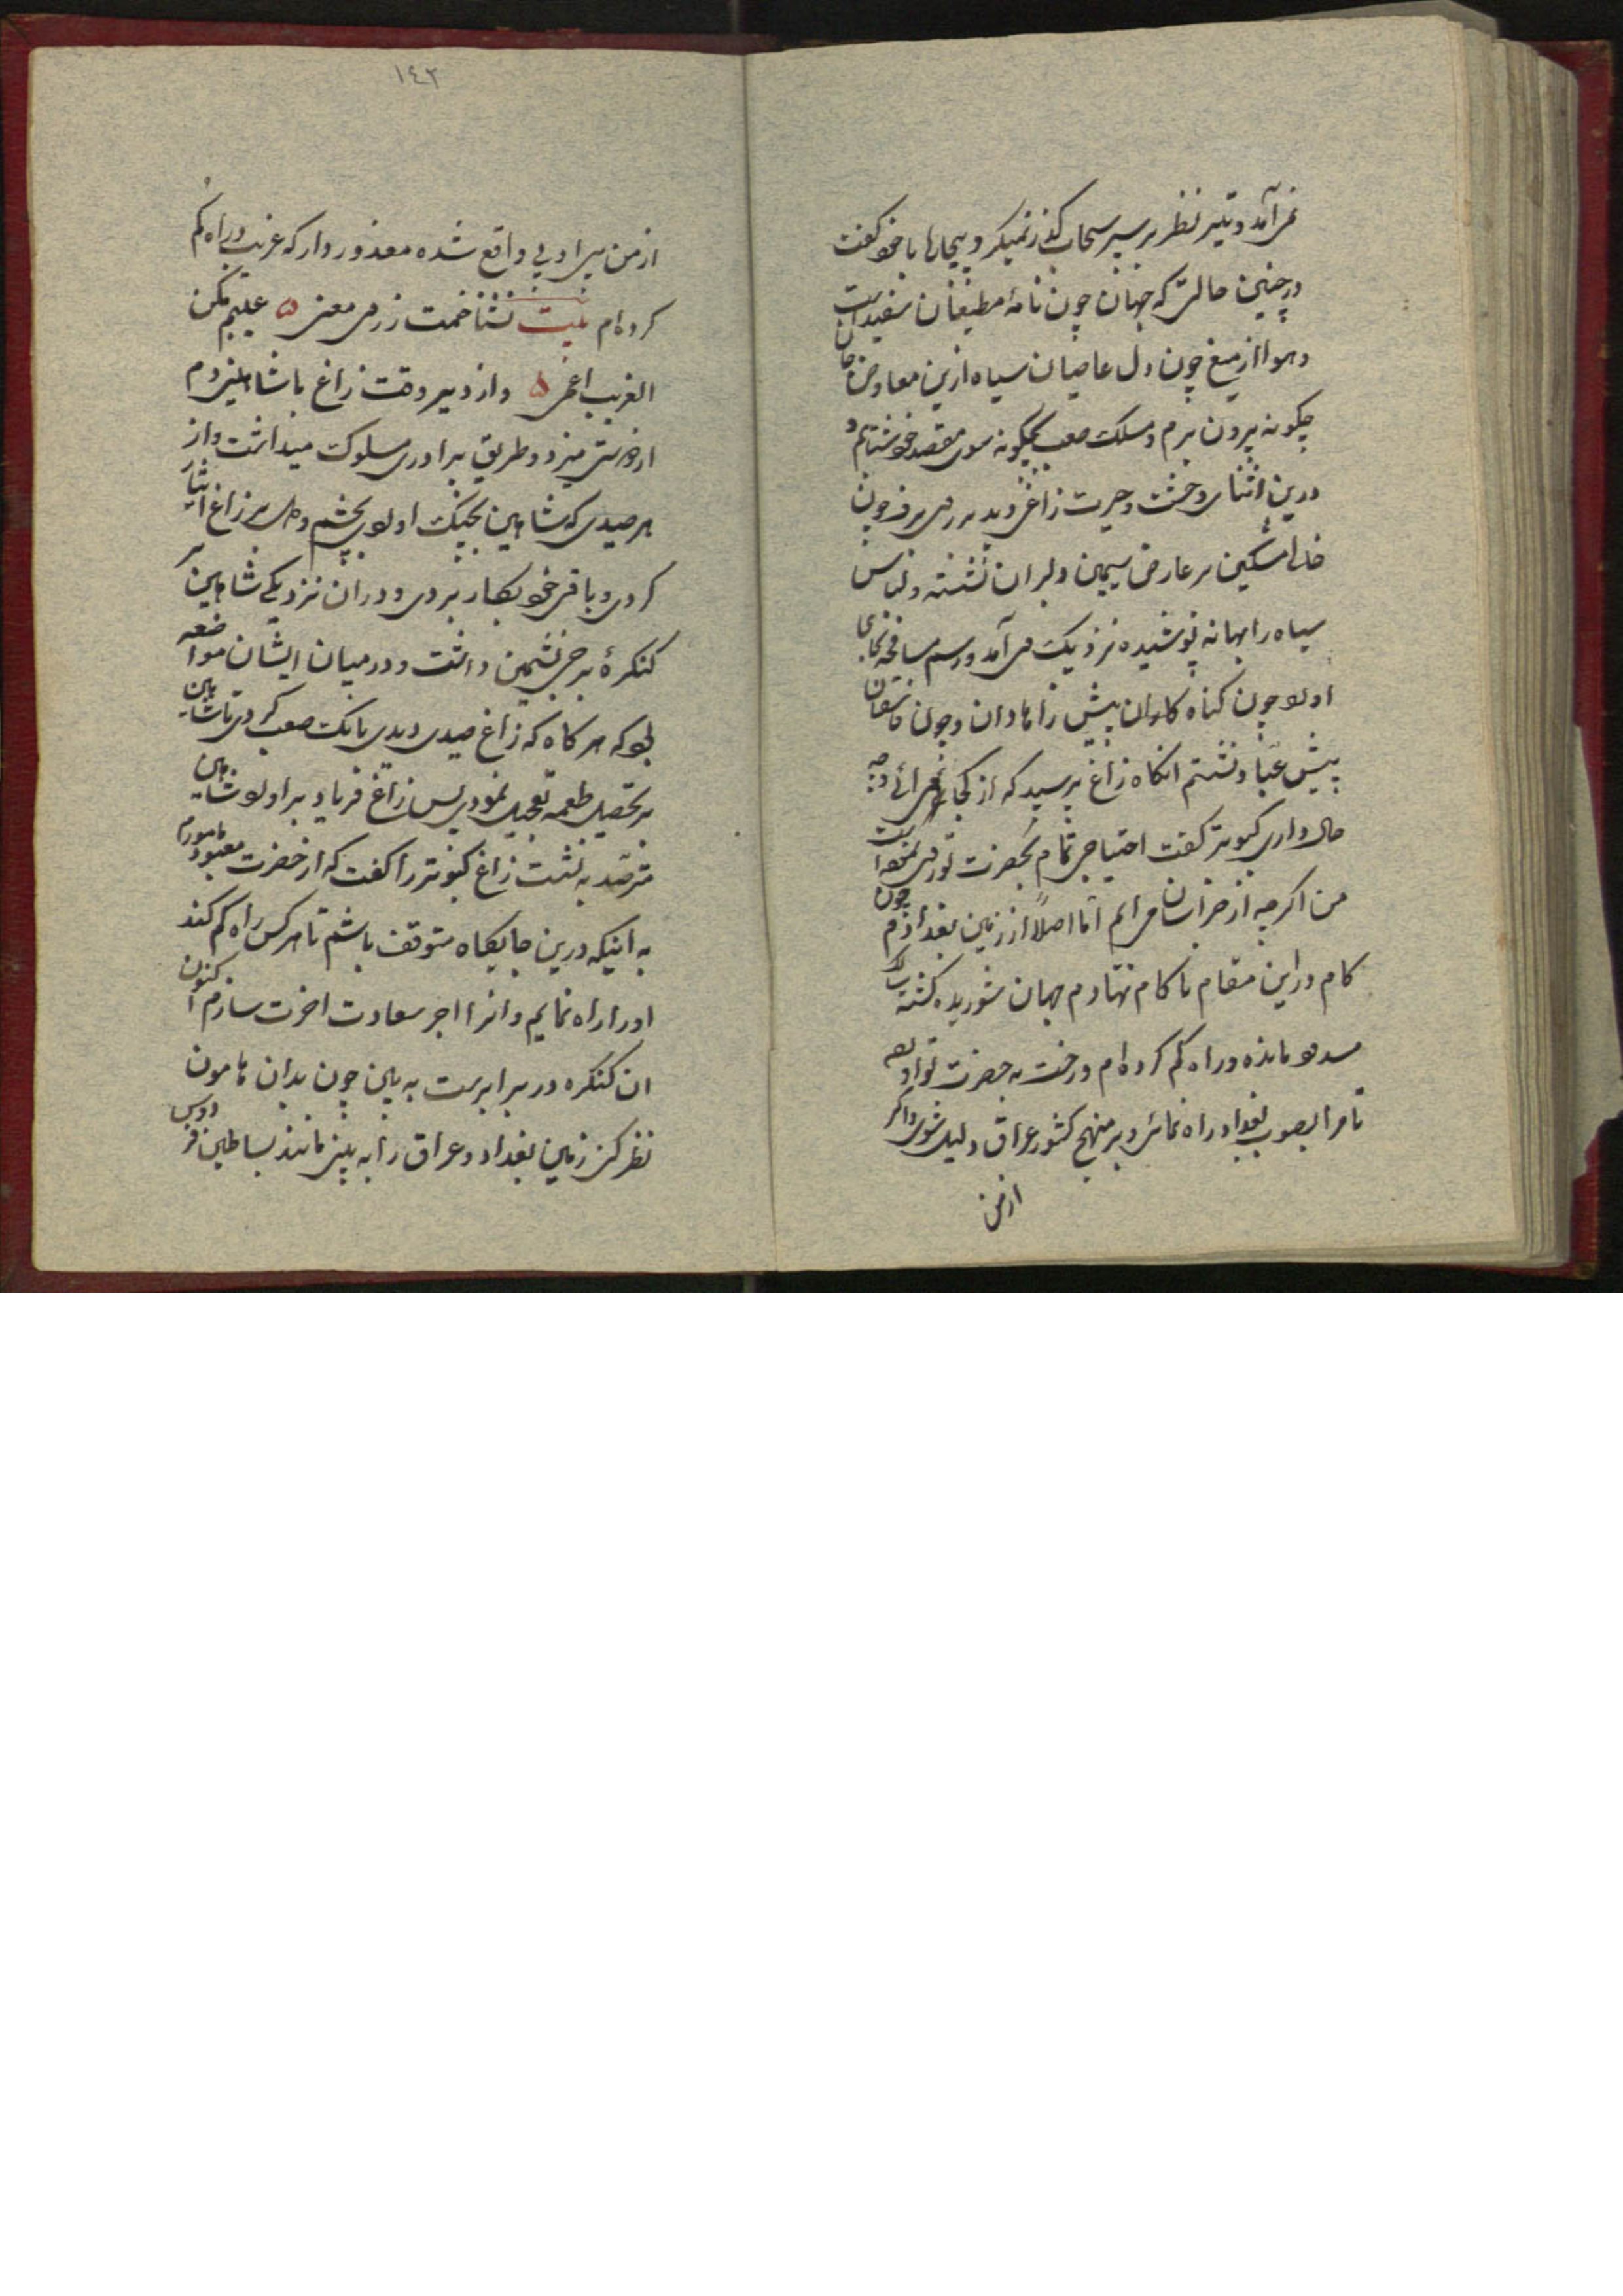 نمی‌آمد و تیر نظر بر سپر سحاب گذر نمیکرد بیچاره با خود کفت
در چنین حالتی که جهان چون نامهٔ مطیعان سفید است
و هوا از میغ چون دل عاصیان سیاه ازین جان
چکونه بیرون برم و مسلک صعب چکونه سوی مقصد خود شتابم و
درین اثنای وحشت و حیرت زاغی دید بر روی برف چون
خال مشکین بر عارض سیمین دلبران نشسته و لباس
سیاه راهبانه پوشیده نزدیک وی آمد و رسم مصافحه بجای
اورد چون کناه کاران پیش زاهدان و چون فاسقان
پیش عباد نشستم انکاه زاغ پرسید که از کجا می‌آئی و چه
حال داری کبوتر کفت احتیاجی تمام بحضرت تو
من اکرچه از خراسان می‌ایم اما اصلا از زمین بغدادم چون
کام در این مقام ناکام نهادم جهان شوریده کشته
مانده و راه کم کرده‌ام و رخت به حضرت تو
تا مرا بصوب بغداد راه نمائی و بر منهج کشور عراق دلیل شوی و اکر
ازمن
١٤٢
ازمن بی ادبی واقع شده معذور دار که غریب و راه کم
کرده‌ام بیت نشناختمت ز روی معنی ۵ عیبم مکن
الغریب اعمی ۵ و از دیر وقت زاغ با شاهین دم
از دوستی میزد و طریق برادری مسلوک میداشت و از
هر صیدی که شاهین بچنک اوردی چشم و دل بر زاغ ایثار
کردی و باقی خود بکار بردی و در ان نزدیکی شاهین بر
کنکرهٔ برجی نشیمن داشت و در میان ایشان مواضعه
بود که هر کاه که زاغ صیدی دیدی بانک صعب کردی تا شاهین
بر تحصیل طعمه تعجیل نمودی پس زاغ فریاد براورد شاهین
مترصد بنشست زاغ کبوتر را کفت که از حضرت معبود مامورم
به اینکه درین جایکاه متوقف باشم تا هر کس راه کم کند
او را راه نمایم و انرا اجر سعادت اخرت سازم اکنون
ان کنکره در برابرست به بین چون بدان هامون
نظر کنی زمین بغداد و عراق را به بینی مانند بساطین فردوس